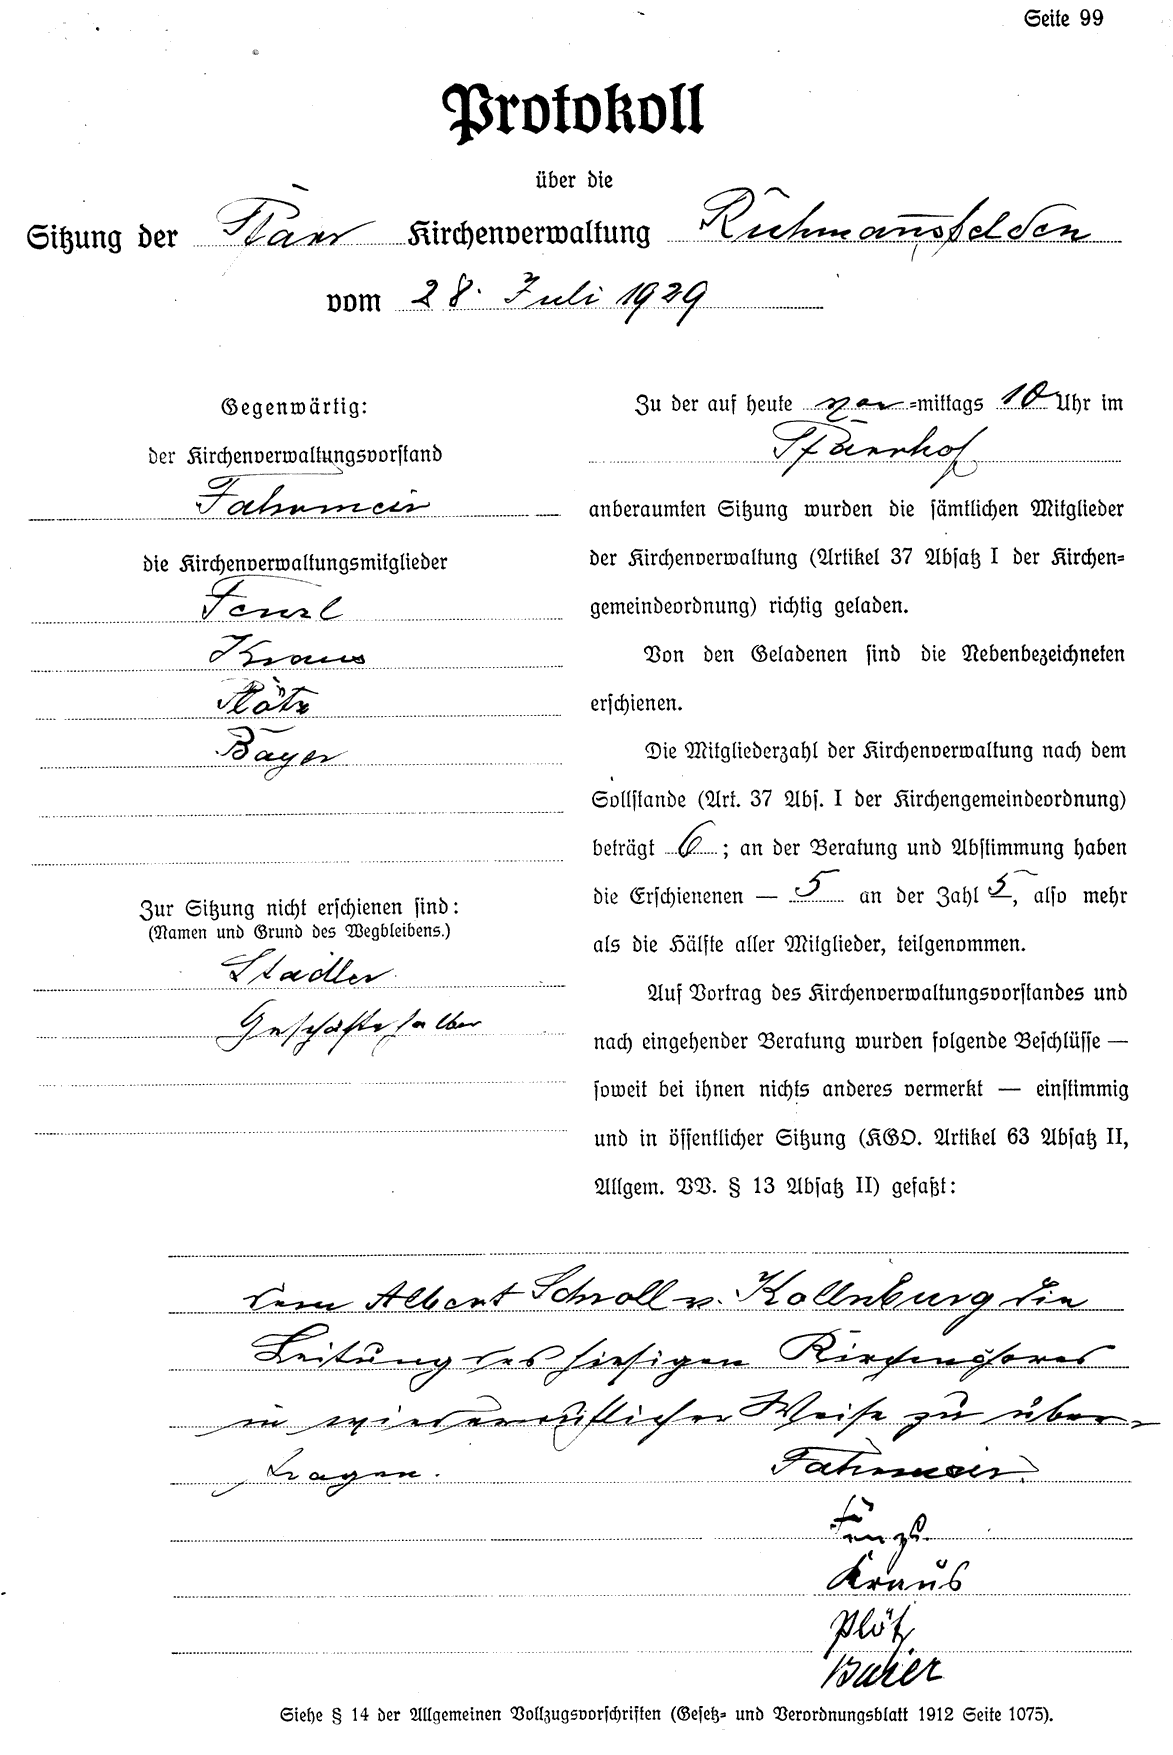 Seite 99
Protokoll
über die
Sitzung der Pfarr Kirchenverwaltung Ruhmannsfelden
vom 28. Juli 1929
Gegenwärtig:
der Kirchenverwaltungsvorstand
Fahrmeier
die Kirchenverwaltungsmitglieder
Fenzl
Kraus
Plötz
Bayer
Zur Sitzung nicht erschienen sind:
(Namen und Grund des Wegbleibens.)
Stadler
Geschäfte halber
Zu der auf heute vor=mittags 10 Uhr im
Pfarrhof
anberaumten Sitzung wurden die sämtlichen Mitglieder
der Kirchenverwaltung (Artikel 37 Absatz I der Kirchen=
gemeindeordnung) richtig geladen.
Von den Geladenen sind die Nebenbezeichneten
erschienen.
Die Mitgliederzahl der Kirchenverwaltung nach dem
Sollstande (Art. 37 Abs. I der Kirchengemeindeordnung)
beträgt 6; an der Beratung und Abstimmung haben
die Erschienenen — 5 an der Zahl 5, also mehr
als die Hälfte aller Mitglieder, teilgenommen.
Auf Vortrag des Kirchenverwaltungsvorstandes und
nach eingehender Beratung wurden folgende Beschlüsse —
soweit bei ihnen nichts anderes vermerkt — einstimmig
und in öffentlicher Sitzung (KGO. Artikel 63 Absatz II,
Allgem. VV. § 13 Absatz II) gefaßt:
dem Albert Schroll v. Kollnburg die
Leitung des hiesigen Kirchenchores
in wiederruflicher Weise zu über-
tragen. Fahrmeier
Fenzl
Kraus
Plötz
Baier
Siehe § 14 der Allgemeinen Vollzugsvorschriften (Gesetz= und Verordnungsblatt 1912 Seite 1075).